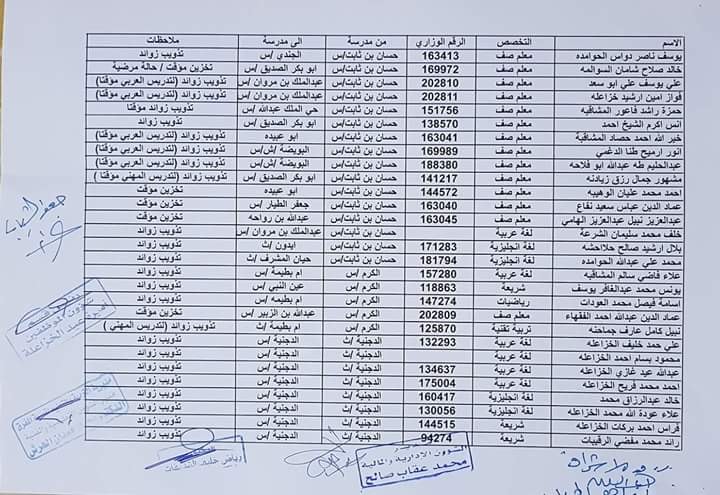 الاسم التخصص الرقم الوزاري من مدرسة الى مدرسة ملاحظات
يوسف ناصر دواس الحوامده معلم صف 163413 حسان بن ثابت/س الجندي /س تذويب زوائد
خالد صلاح شامان السوالمه معلم صف 169972 حسان بن ثابت/س ابو بكر الصديق /س تخزين مؤقت / حالة مرضية
علي يوسف علي ابو سعد معلم صف 202810 حسان بن ثابت/س عبدالملك بن مروان /س تذويب زوائد (لتدريس العربي مؤقتا)
فواز امين ارشيد خزاعله معلم صف 202811 حسان بن ثابت/س عبدالملك بن مروان /س تذويب زوائد (لتدريس العربي مؤقتا)
حمزة راشد فاعور المشاقبه معلم صف 151756 حسان بن ثابت/س حي الملك عبدالله /س تذويب زوائد مؤقتا
انس اكرم الشيخ احمد معلم صف 138570 حسان بن ثابت/س ابو بكر الصديق /س تذويب زوائد
خير الله احمد حصاد المشاقبة معلم صف 163041 حسان بن ثابت/س ابو عبيده تذويب زوائد (لتدريس العربي مؤقتا)
انور ارميح طنا الدغمي معلم صف 169989 حسان بن ثابت/س البويضة /ش/س تذويب زوائد (لتدريس العربي مؤقتا)
عبدالحليم طه عبدالله ابو فلاحه معلم صف 188380 حسان بن ثابت/س البويضة /ش/س تذويب زوائد (لتدريس العربي مؤقتا)
مشهور جمال رزق زيادنه معلم صف 141217 حسان بن ثابت/س ابو بكر الصديق /س تذويب زوائد (لتدريس المهني مؤقتا )
احمد محمد عليان الوهيبه معلم صف 144572 حسان بن ثابت/س ابو عبيده تخزين مؤقت
عماد الدين عباس سعيد نفاع معلم صف 163040 حسان بن ثابت/س جعفر الطيار /س تخزين مؤقت
عبدالعزيز نبيل عبدالعزيز الهامي معلم صف 163045 حسان بن ثابت/س عبدالله بن رواحه تخزين مؤقت
خلف محمد سليمان الشرعة لغة عربية حسان بن ثابت/س عبدالملك بن مروان /س تذويب زوائد
بلال ارشيد صالح حلاحشه لغة انجليزية 171283 حسان بن ثابت/س ايدون /ث تذويب زوائد
محمد علي عبدالله الحوامده لغة انجليزية 181794 حسان بن ثابت/س حيان المشرف /ث تذويب زوائد
علاء فاضي سالم المشاقبه لغة عربية 157280 الكرم /س ام بطيمة /س تذويب زوائد
يونس محمد عبدالغافر يوسف شريعة 118863 الكرم /س عين النبي /س تذويب زوائد
اسامة فيصل محمد العودات رياضيات 147274 الكرم /س ام بطيمه /س تذويب زوائد
عماد الدين عبدالله احمد الفقهاء معلم صف 202809 الكرم /س عبدالله بن الزبير /س تخزين مؤقت
نبيل كامل عارف جماحنه تربية تقنية 125870 الكرم /س ام بطيمة /ث تذويب زوائد (لتدريس المهني )
علي حمد خليف الخزاعله لغة عربية 132293 الدجنية /ث الدجنية /س تذويب زوائد
محمود بسام احمد الخزاعله لغة عربية الدجنية /ث الدجنية /س تذويب زوائد
عبدالله عيد غازي الخزاعله لغة عربية 134637 الدجنية /ث الدجنية /س تذويب زوائد
احمد محمد فريح الخزاعله لغة عربية 175004 الدجنية /ث الدجنية /س تذويب زوائد
خالد عبدالرزاق محمد لغة انجليزية 160417 الدجنية /ث الدجنية /س تذويب زوائد
علاء عودة الله محمد الخزاعله لغة انجليزية 130056 الدجنية /ث الدجنية /س تذويب زوائد
فراس احمد بركات الخزاعله شريعة 144515 الدجنية /ث الدجنية /س تذويب زوائد
رائد محمد مفضي الرقيبات شريعة 94274 الدجنية /ث الدجنية /س تذويب زوائد
الشؤون الادارية والمالية
محمد عقاب صالح